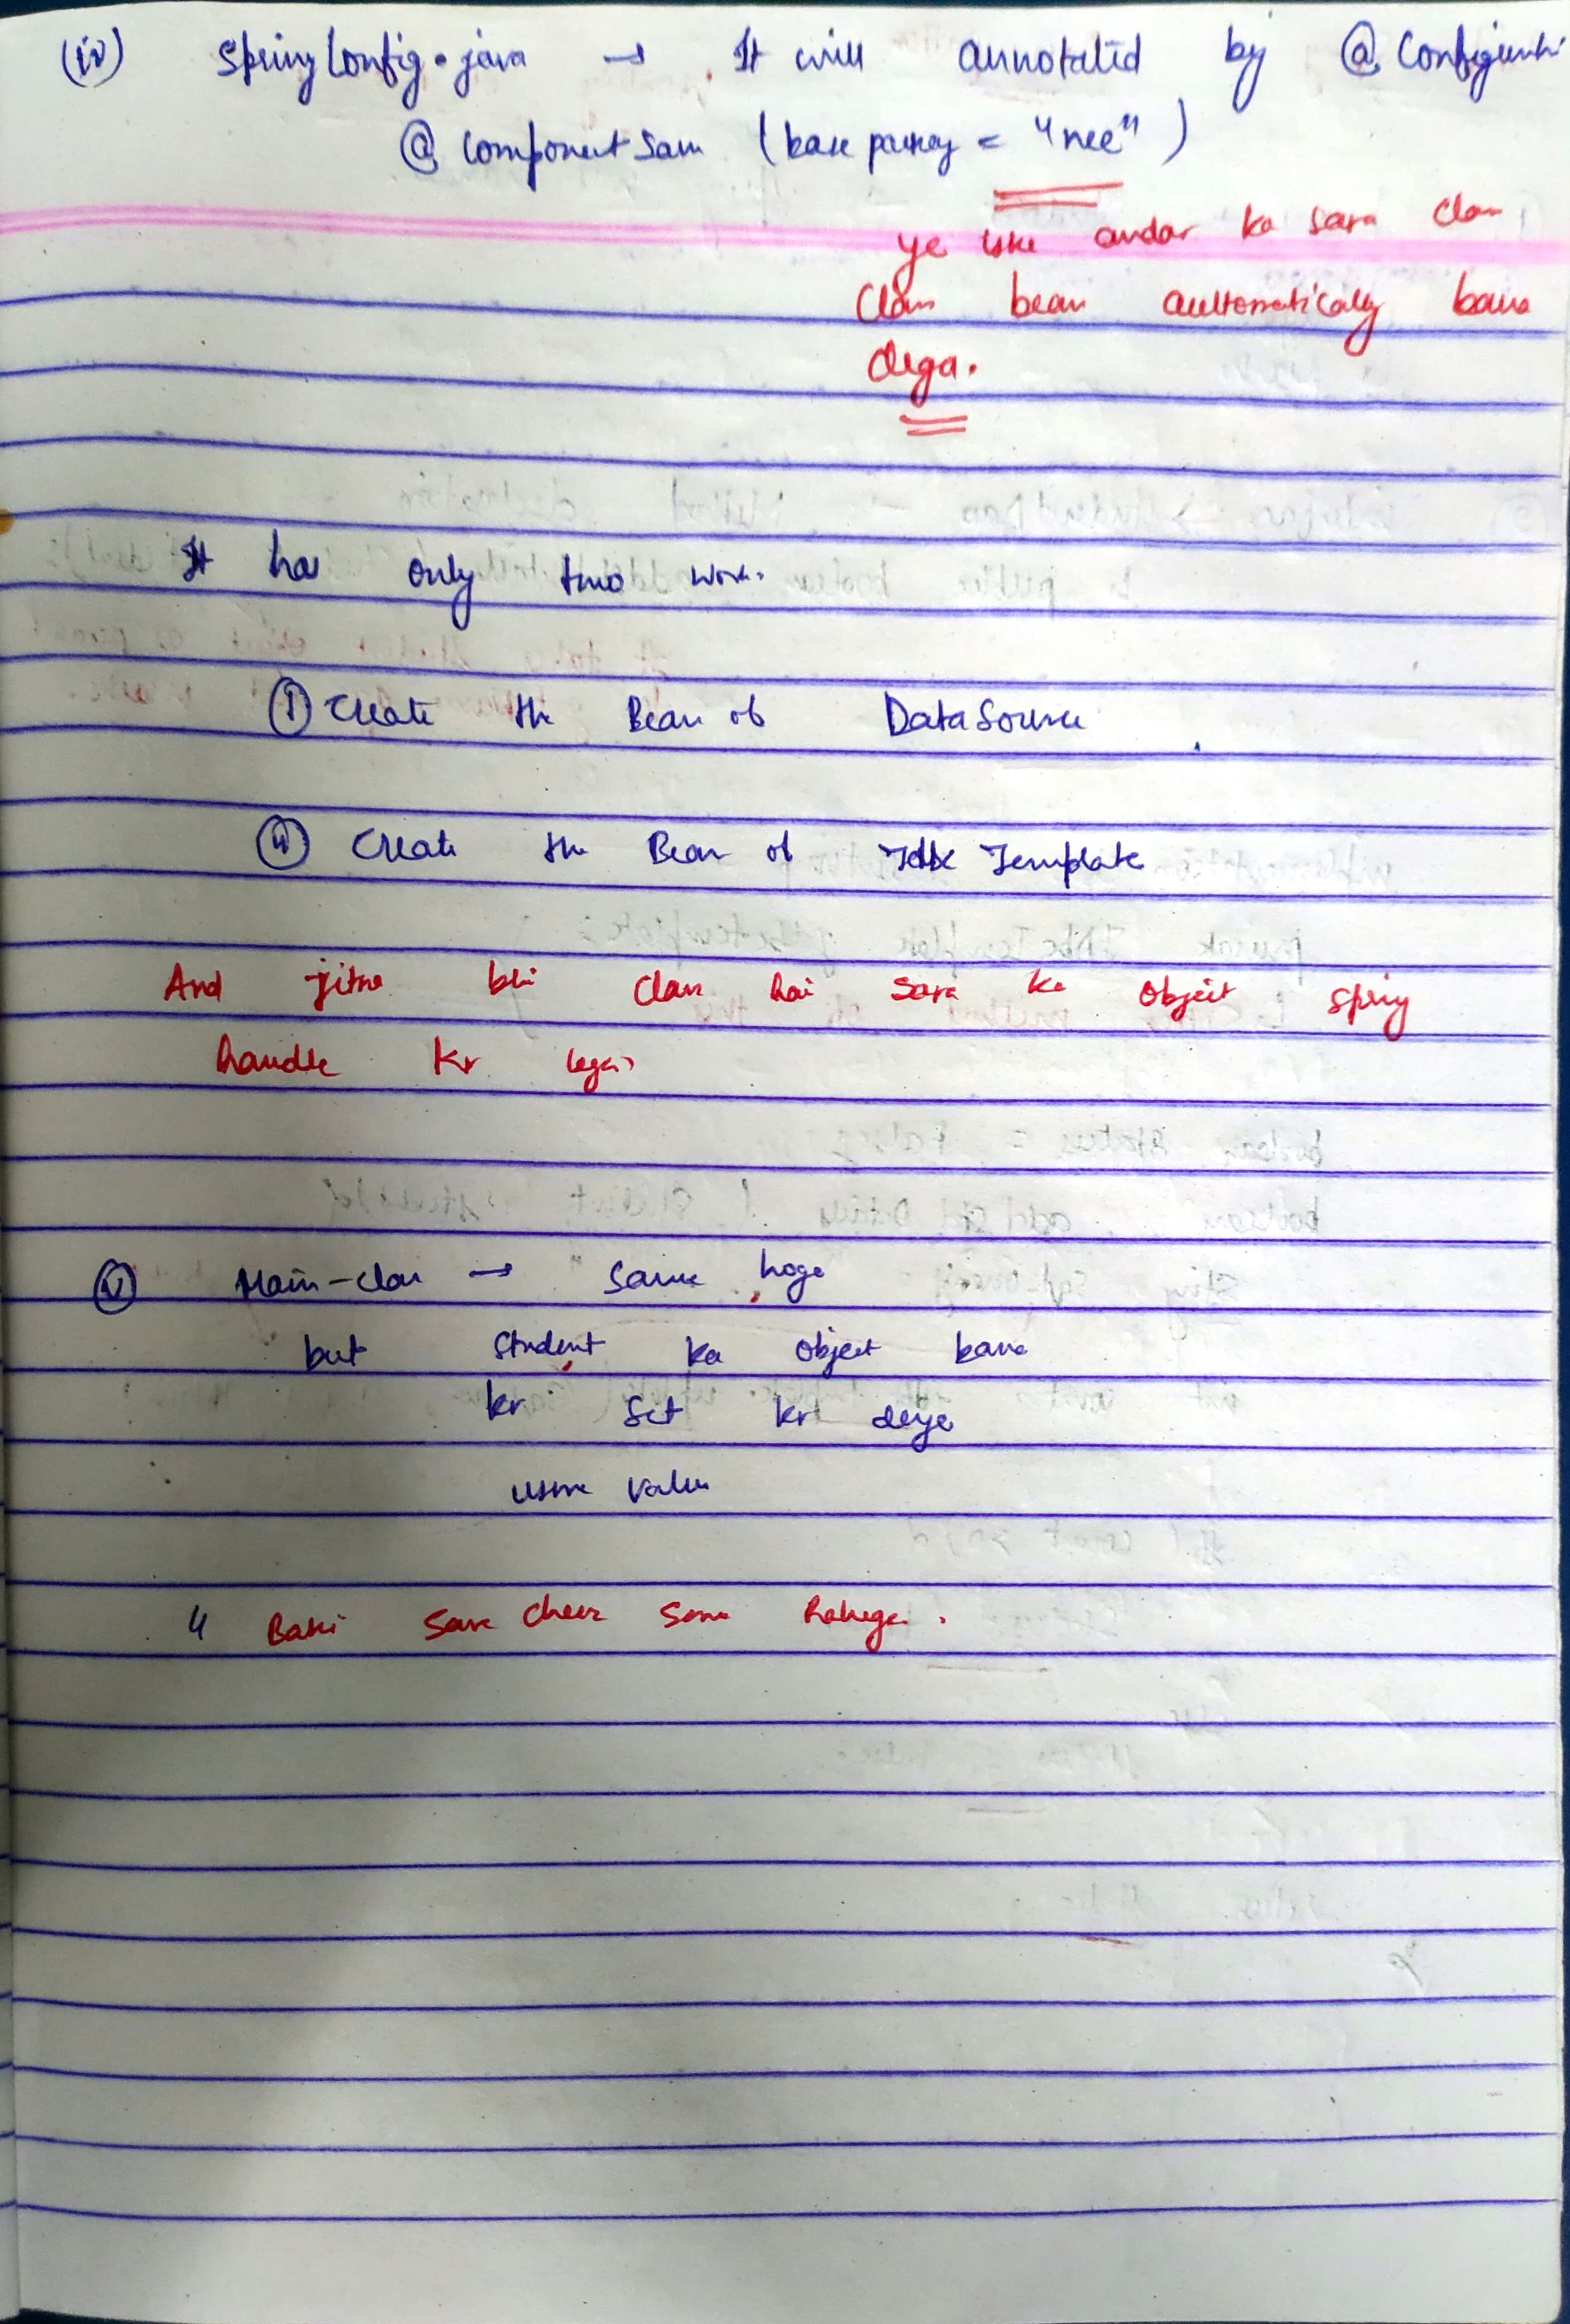 (iv) SpringConfig.java → It will annotated by @ Configurati
@ Component Scan (base packag = "nee")
ye iske andar ka sara Class
Class bean aultomatically bana
dega.
It has only two work.
(i) Create the Bean of DataSource
(ii) Create the Bean of Jdbc Template
And jitna bhi Class hai sara ka Object Spring
handle kr lega
(v) Main-class → Same hoga
but Student ka object bana
kr Set kr denge
usme value
Baki sara cheez same rahega.